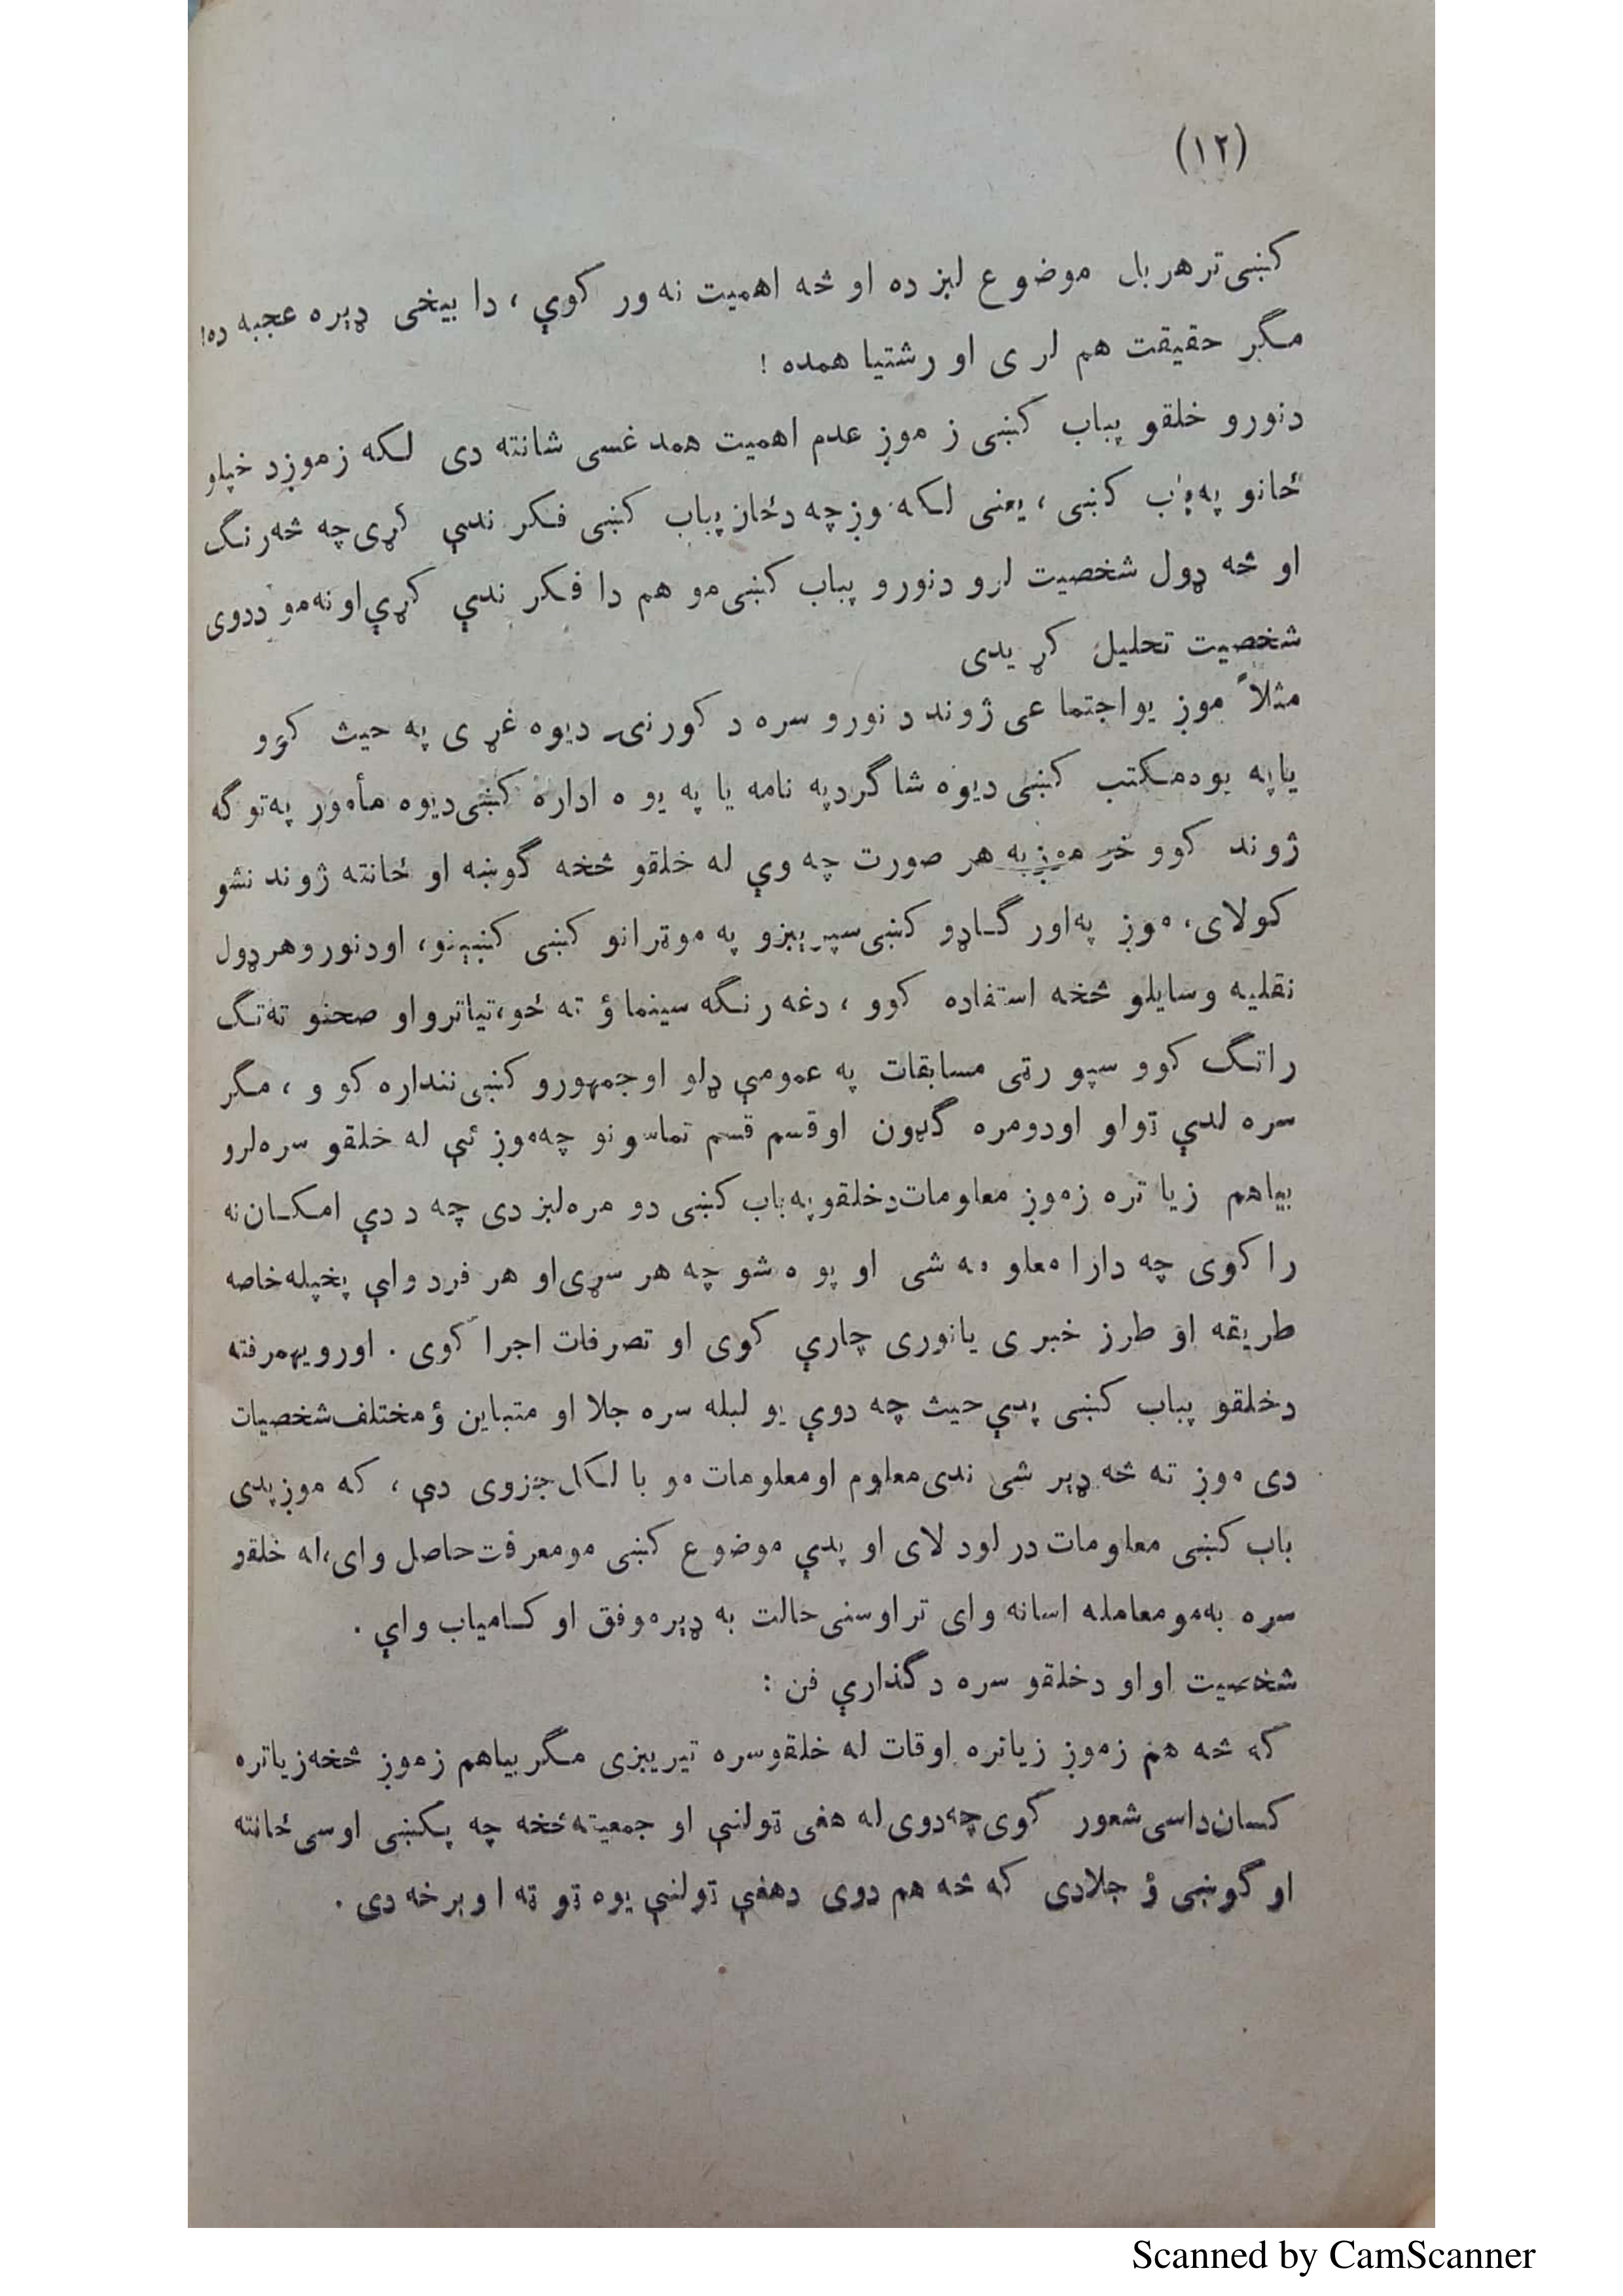 (۱۲)
کښی تر هر بل موضوع لږ زده او څه اهمیت نه ور کوي ، دا بیخی ډېره عجبه ده!
مگر حقیقت هم لر ی او رشتیا همده !
دنورو خلقو پباب کښی ز موږ عدم اهمیت همد غسی شانته دی لکه زموږد خپلو
ځانو په باب کښی ، یعنی لکه موږ چه دځان پباب کښی فکر ندې کړی چه څه رنگ
او څه ډول شخصیت لرو دنورو پباب کښی مو هم دا فکر ندې کړي اونه مو ددوی
شخصیت تحلیل کړ یدی
مثلاً موږ یواجتما عی ژوند د نورو سره د کورنۍ دیوه غړ ی په حیث کوو
یاپه یودمکتب کښی دیوه شاگردپه نامه یا په یو ه اداره کښی دیوه مأمور په توگه
ژوند کوو خو موږ به هر صورت چه وي له خلقو څخه گوښه او ځانته ژوند نشو
کولای، موږ په اور گاډو کښی سپریږو په موټرانو کښی کښېنو، اودنورو هر ډول
نقلیه وسایلو څخه استفاده کوو ، دغه رنگه سینماؤ ته ځو، تیاترو او صحنو ته تگ
راتگ کوو سپو رټی مسابقات په عمومي ډلو اوجمهورو کښی ننداره کو و ، مگر
سره لدې ټولو اودومره گډون اوقسم قسم تماسو نو چه موږ ئې له خلقو سره لرو
بیاهم زیا تره زموږ معلومات دخلقو په باب کښی دو مره لږ دی چه د دې امکان نه
را کوی چه دارا معلو مه شی او پو ه شو چه هر سړی او هر فرد ولې پخپله خاصه
طریقه او طرز خبر ی یانوری چارې کوی او تصرفات اجرا کوی . اورویهمرفته
دخلقو پباب کښی پدې حیث چه دوې یو لبله سره جلا او متباین ؤ مختلف شخصیات
دی موږ ته څه ډېر شی ندی معلوم اومعلومات مو با لکل جزوی دې ، که موږ پدی
باب کښی معلومات در لود لای او پدې موضوع کښی مومعرفت حاصل وای، له خلقو
سره به مو معامله اسانه وای تر اوسنی حالت به ډېر موفق او کامیاب وای .
شخصیت او او دخلقو سره د گذارې فن :
که څه هم زموږ زیاتره اوقات له خلقوسره تیریږی مگر بیاهم زموږ څخه زیاتره
کسان داسی شعور کوی چه دوی له هغی ټولنې او جمعیته څخه چه پکښی اوسی ځانته
او گوښی ؤ جلادی که څه هم دوی دهغې ټولنې یوه ټو ټه او برخه دی .
Scanned by CamScanner